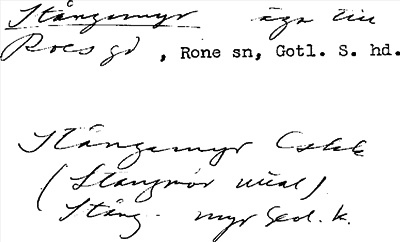 Stångemyr äga till
Roes gd, Rone sn, Gotl. S. hd.
Stångemyr
(Stangmör
Stång- myr Geol. k.